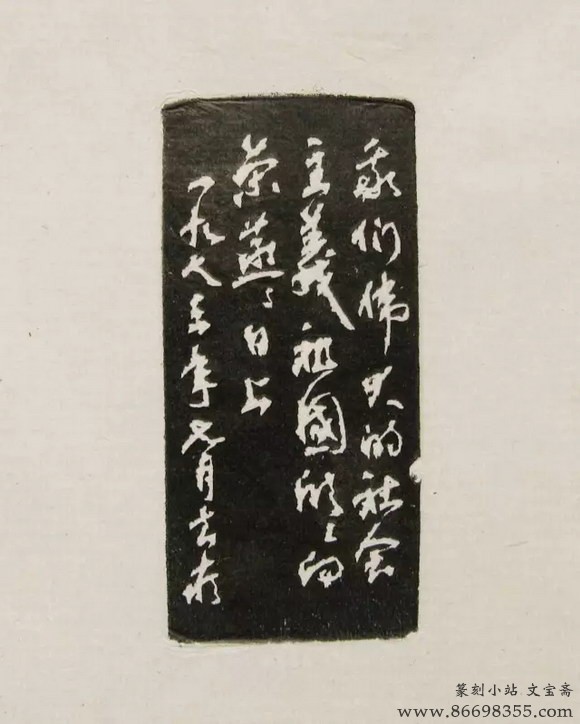 我们伟大的社会
主义祖國欣欣向
荣蒸蒸日上
一九八三年元月去疾
篆刻小站 文宝斋
www.86698355.com